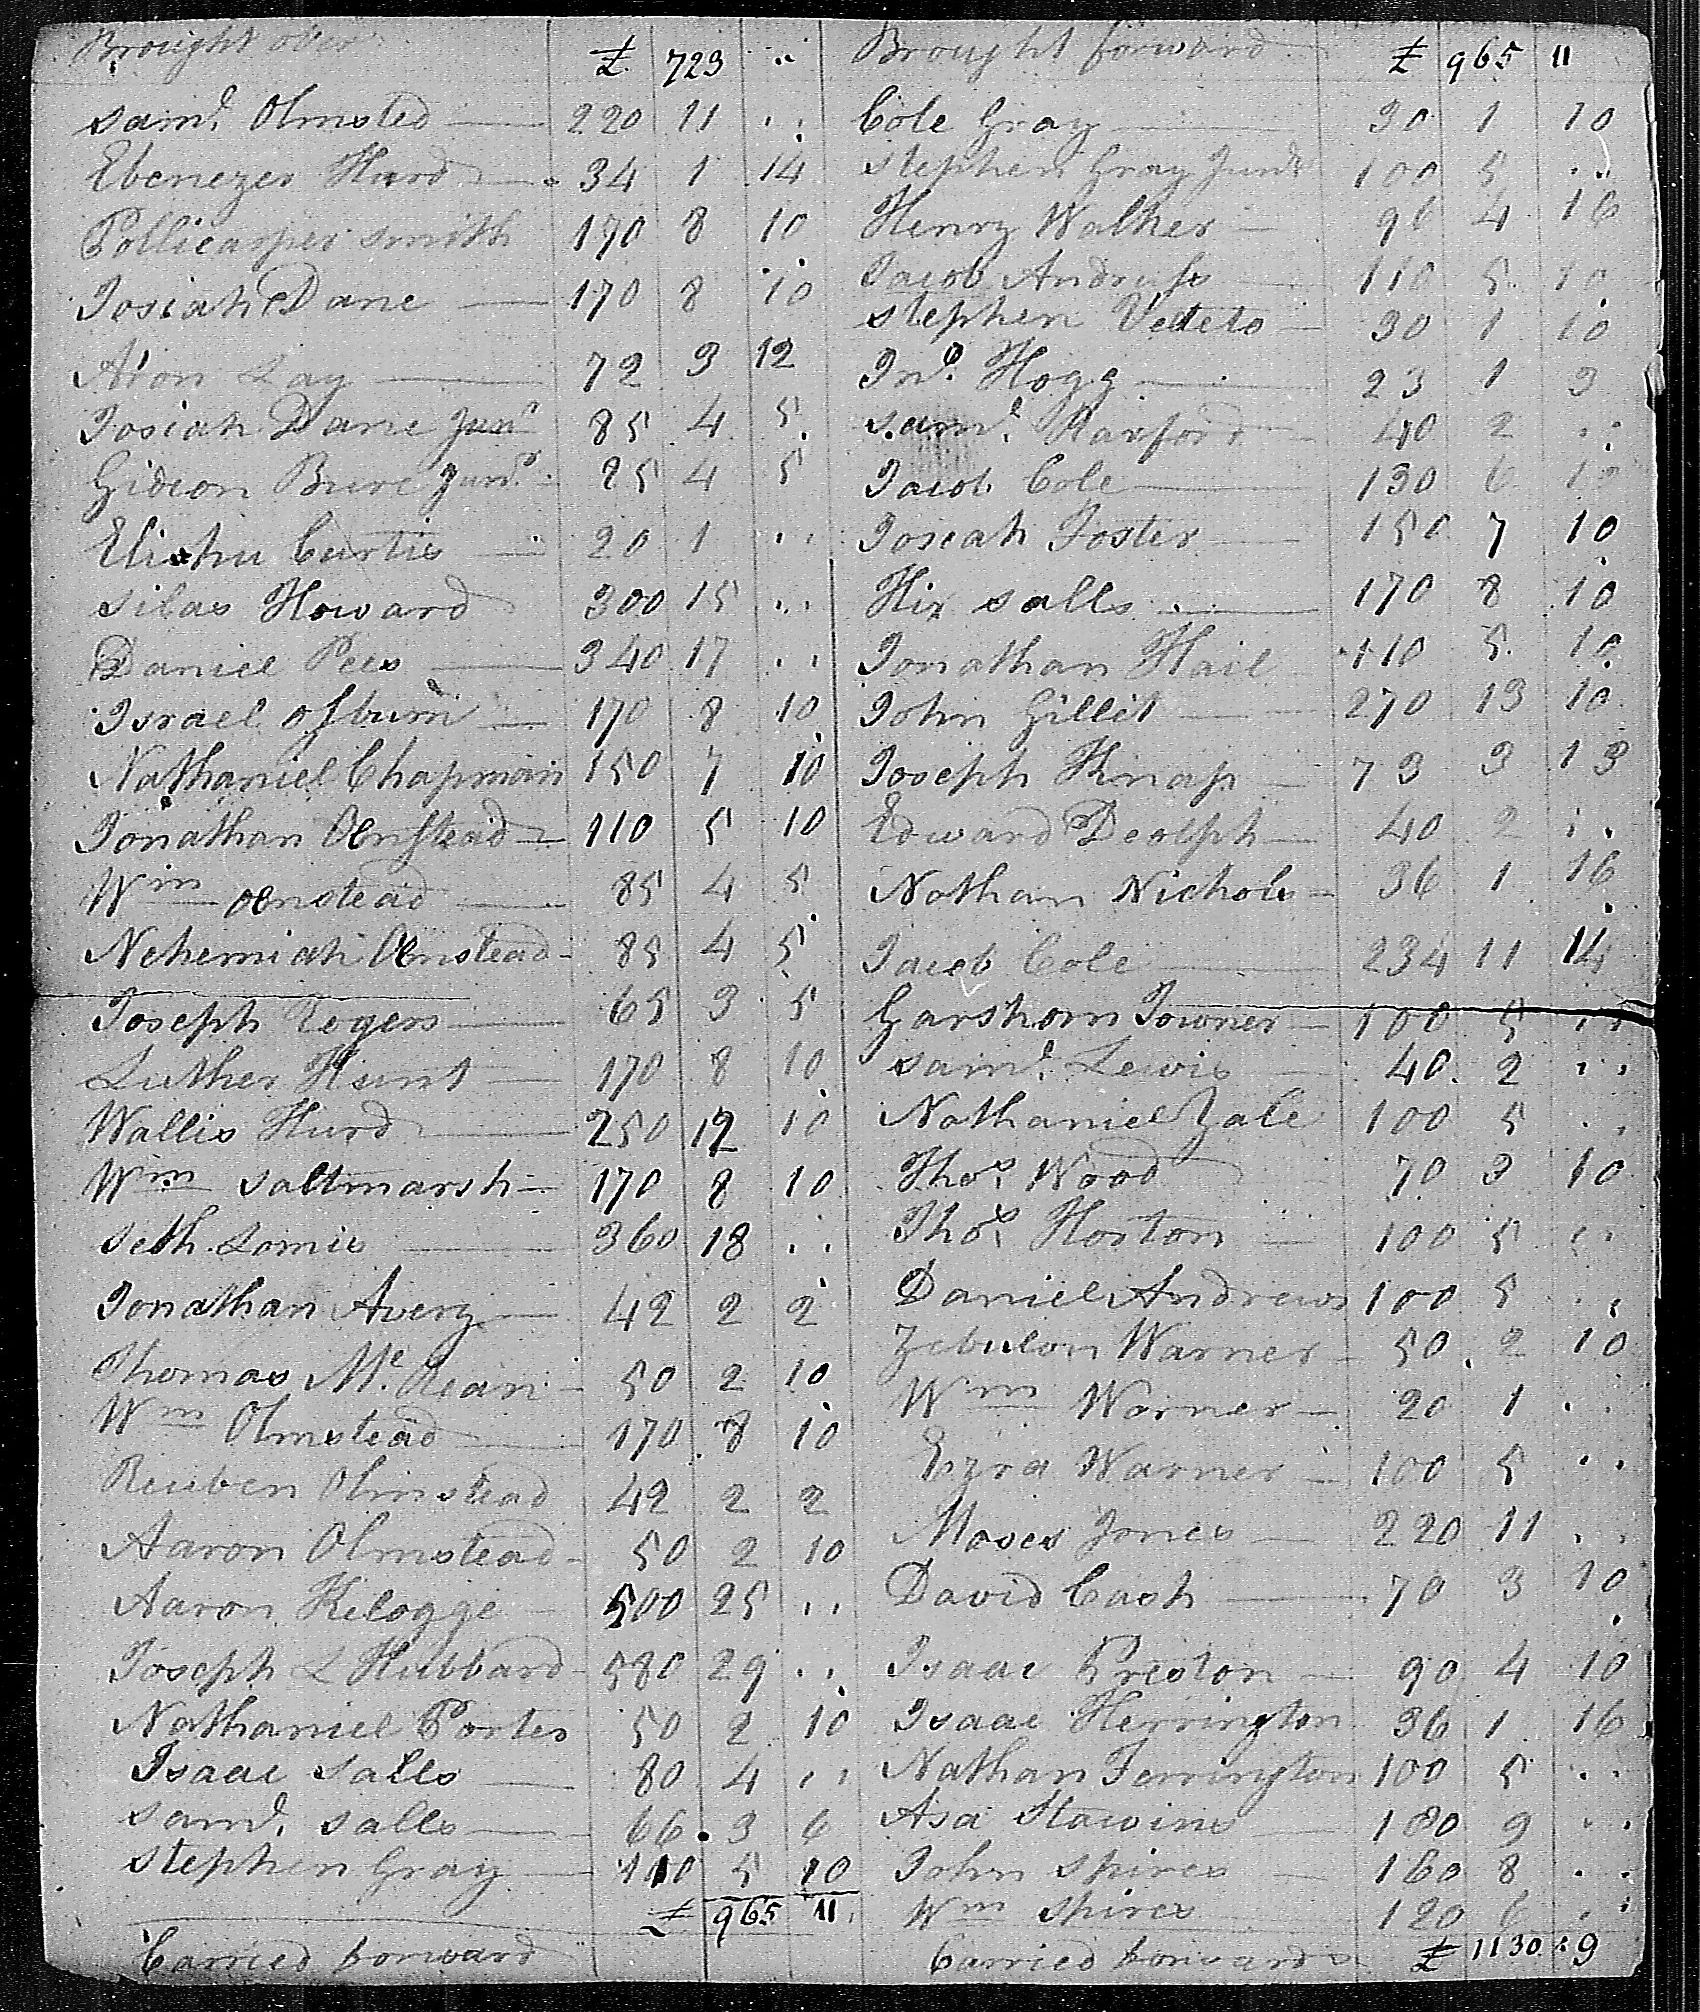 Brought over £ 723 ..
Sam.l Olmsted 220 11 ..
Ebenezer Hurd 34 1 14
Pollicarper Smith 170 8 10
Josiah Dane 170 8 10
Aron Lay 72 3 12
Josiah Dane Jun.r 85 4 5
Gideon Bure Jun.r 85 4 5
Elishu Curtis 20 1 ..
Silas Howard 300 15 ..
Daniel Pees 340 17 ..
Israel Osburn 170 8 10
Nathaniel Chapman 150 7 10
Jonathan Olmstead 110 5 10
Wm Olmstead 85 4 5
Nehemiah Olmstead 85 4 5
Joseph Rogers 65 3 5
Luther Hunt 170 8 10
Wallis Hurd 250 12 10
Wm Saltmarsh 170 8 10
Seth Lomis 360 18 ..
Jonathan Avery 42 2 2
Thomas Mc. Kean 50 2 10
Wm Olmstead 170 8 10
Reuben Olmstead 42 2 2
Aaron Olmstead 50 2 10
Aaron Kelogge 500 25 ..
Joseph L Hubbard 580 29 ..
Nathaniel Porter 50 2 10
Isaac Salls 80 4 ..
Sam.l Salls 66 3 6
Stephen Gray 110 5 10
£ 965 11
Carried forward
Brought forward £ 965 11
Cole Gray 30 1 10
Stephen Gray Junr 100 5 ..
Henry Walker 96 4 16
Jacob Andruss 110 5 10
Stephen Vedeto 30 1 10
Jno. Hogg 23 1 3
Sam.l Hanford 40 2 ..
Jacob Cole 130 6 10
Josiah Foster 150 7 10
Hix Salls 170 8 10
Jonathan Hail 110 5 10
John Gillit 270 13 10
Joseph Knap 73 3 13
Edward Dealph 40 2 ..
Nathan Nichols 36 1 16
Jacob Cole 234 11 14
Garshom Towner 100 5 ..
Sam.l Lewis 40 2 ..
Nathaniel Zale 100 5 ..
Thos. Wood 70 3 10
Thos. Horton 100 5 ..
Daniel Andrews 100 5 ..
Zebulon Warner 50 2 10
Wm Warner 20 1 ..
Ezra Warner 100 5 ..
Moses Jones 220 11 ..
David Cash 70 3 10
Isaac Preston 90 4 10
Isaac Herrington 36 1 16
Nathan Ferrington 100 5 ..
Asa Stawins 180 9 ..
John Spires 160 8 ..
Wm Spires 120 6 ..
Carried forward £ 1130 : 9